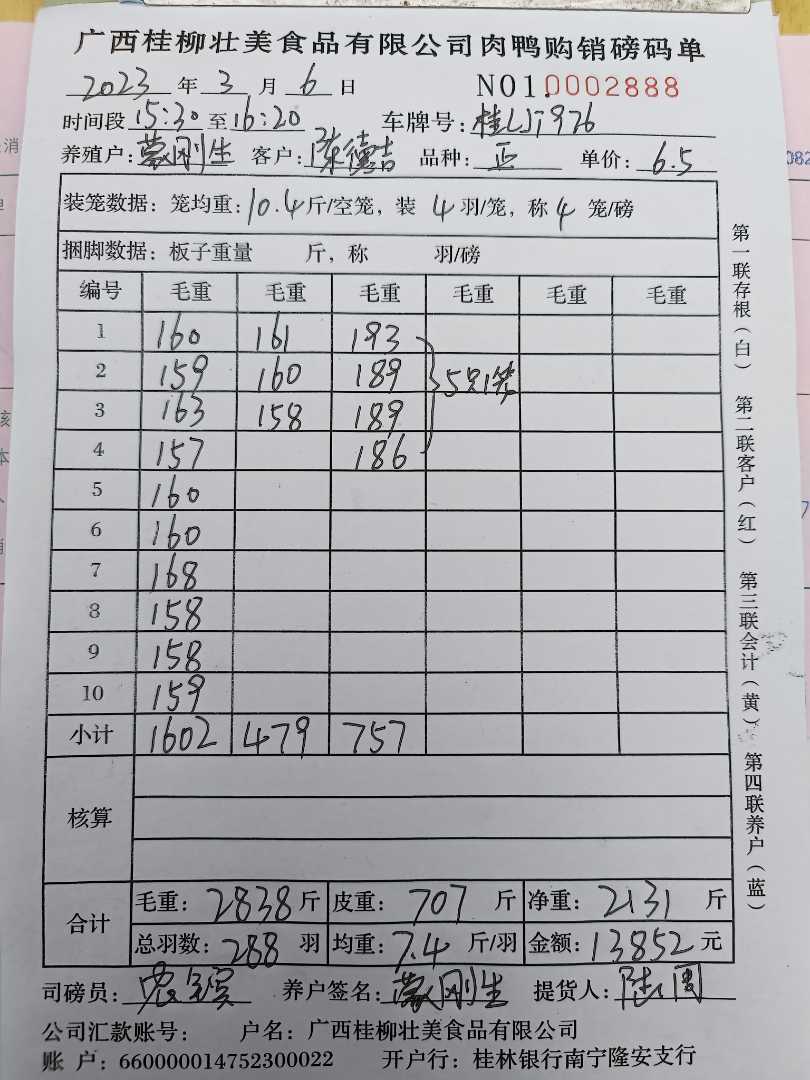 广西桂柳壮美食品有限公司肉鸭购销磅码单
2023 年 3 月 6 日 NO1.0002888
时间段 15:30 至 16:20 车牌号:
养殖户: 蒙刚生 客户: 陈德吉 品种: 正 单价: 6.5
装笼数据: 笼均重: 10.4 斤/空笼, 装 4 羽/笼, 称 4 笼/磅
捆脚数据: 板子重量 斤, 称 羽/磅
编号 毛重 毛重 毛重 毛重 毛重 毛重
1 160 161 193
2 159 160 189 5只1笼
3 163 158 189
4 157 186
5 160
6 160
7 168
8 158
9 158
10 159
小计 1602 479 757
核算
合计 毛重: 2838 斤 皮重: 707 斤 净重: 2131 斤
总羽数: 288 羽 均重: 7.4 斤/羽 金额: 13852 元
司磅员: 养户签名: 蒙刚生 提货人:
公司汇款账号: 户名: 广西桂柳壮美食品有限公司
账 户: 660000014752300022 开户行: 桂林银行南宁隆安支行
第一联存根(白) 第二联客户(红) 第三联会计(黄) 第四联养户(蓝)